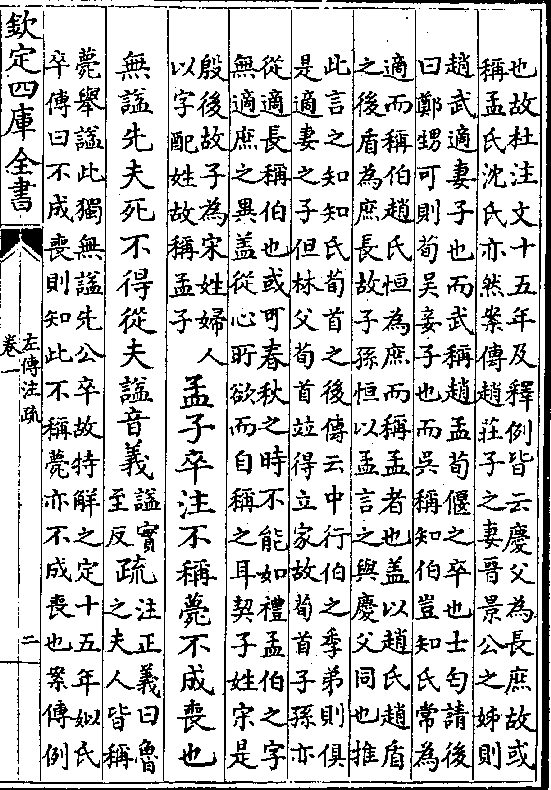 也故杜注文十五年及釋例皆云慶父為長庶故或
稱孟氏沈氏亦然案傳趙莊子之妻晉景公之姊則
趙武適妻子也而武稱趙孟荀偃之卒也士匄請後
曰鄭甥可則荀吳妾子也而吳稱知伯豈知氏常為
適而稱伯趙氏恒為庶而稱孟者也盖以趙氏趙盾
之後盾為庶長故子孫恒以孟言之與慶父同也推
此言之知知氏荀首之後傳云中行伯之季弟則俱
是適妻之子但林父荀首竝得立家故荀首子孫亦
從適長稱伯也或可春秋之時不能如禮孟伯之字
無適庶之異盖從心所欲而自稱之耳契子姓宋是
殷後故子為宋姓婦人
以字配姓故稱孟子
孟子卒注不稱薨不成喪也
無諡先夫死不得從夫諡音義
諡實
至反
疏
注正義曰魯
之夫人皆稱
薨舉諡此獨無諡先公卒故特解之定十五年姒氏
卒傳曰不成喪則知此不稱薨亦不成喪也案傳例
欽定四庫全書
左傳注疏
卷一
二